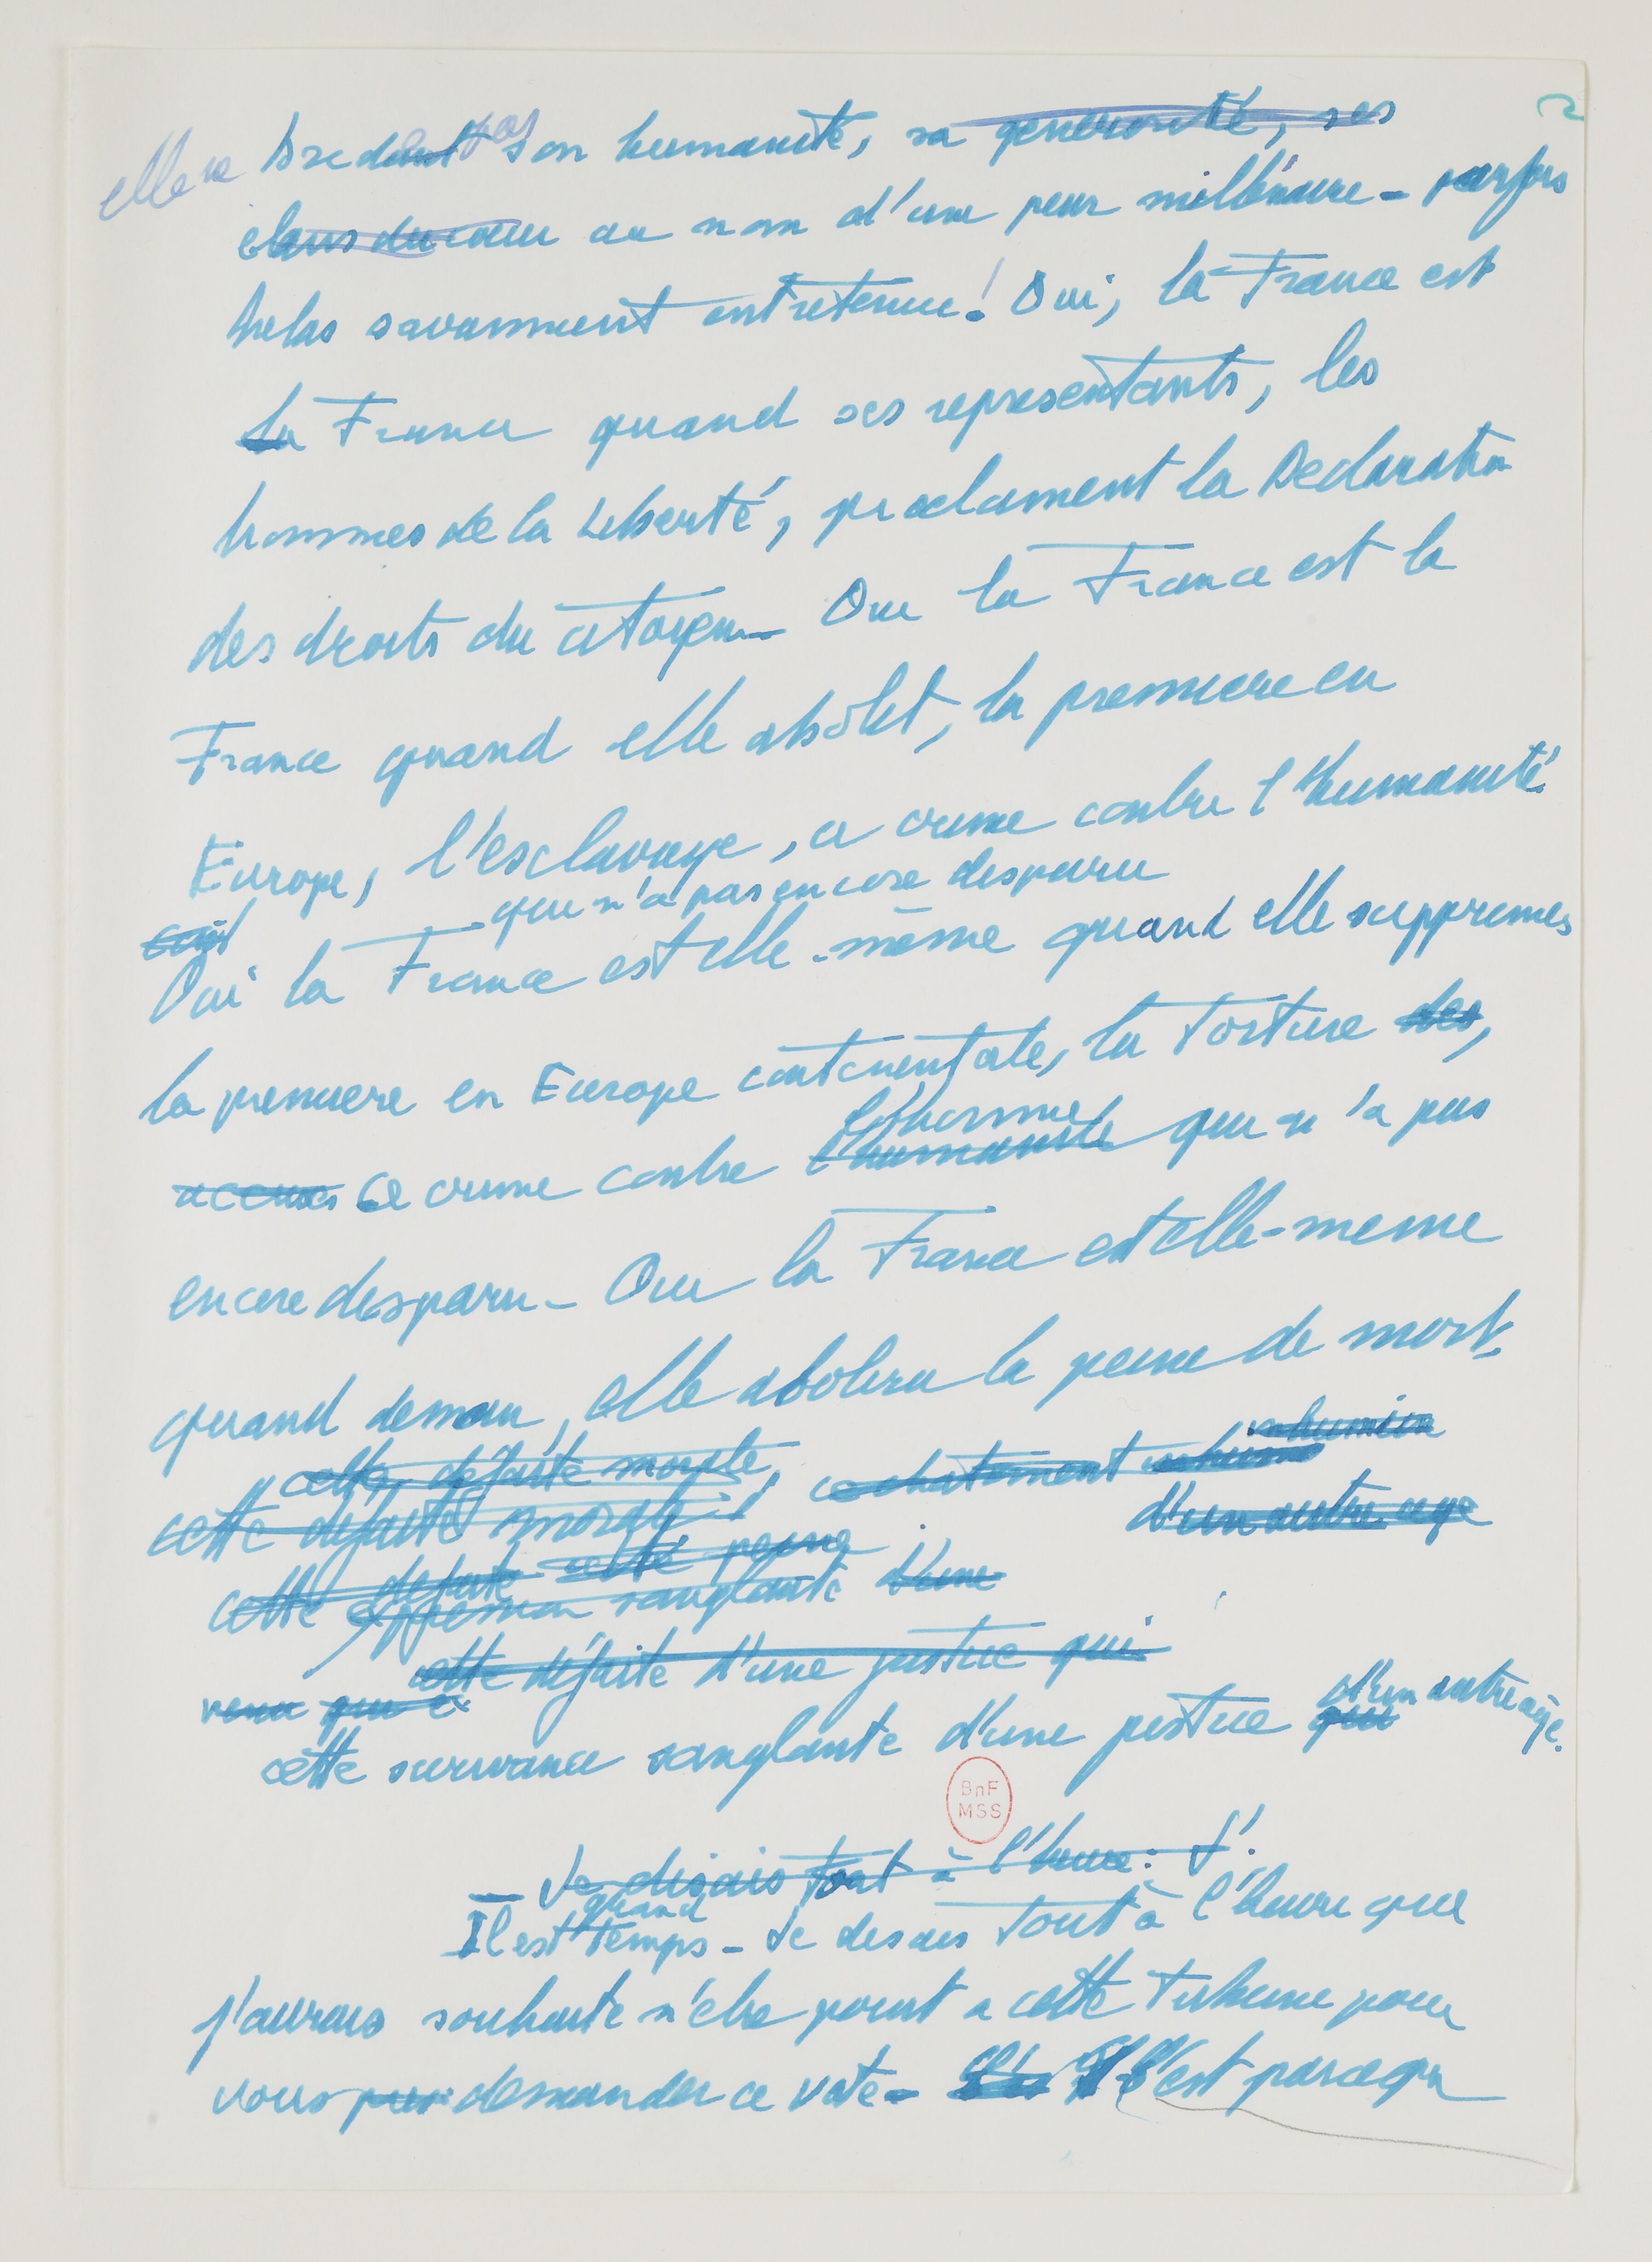 2
elle ne bredant pas son humanité, sa générosité, ses
élans du cœur au nom d'une peur millénaire - parfois
helas savamment entretenue! Oui, la France est
la France quand ses representants, les
hommes de la Liberté, proclament la Declaration
des droits du citoyen - Oui la France est la
France quand elle abolit, la premiere en
Europe, l'esclavage, ce crime contre l'humanité
qui n'a pas encore disparu
Oui la France est elle-même quand elle supprimes
la premiere en Europe continentale, la torture des,
l'homme
ce crime contre l'humanité qui n'a pas
encore disparu - Oui la France est elle-meme
quand demain, elle abolira la peine de mort,
inhumain
cette défaite morale, ce chatiment
cette défaite morale d'un autre age
defaite cette peine
cette expression sanglante d'une
cette défaite d'une justice qui
d'un autre âge.
cette survivance sanglante d'une justice qui
BnF
MSS
Je disais tout à l'heure: J'
grand
Il est temps - Je disais tout à l'heure que
j'aurais souhaité n'être point a cette tribune pour
vous demander ce vote - C'est parcequ